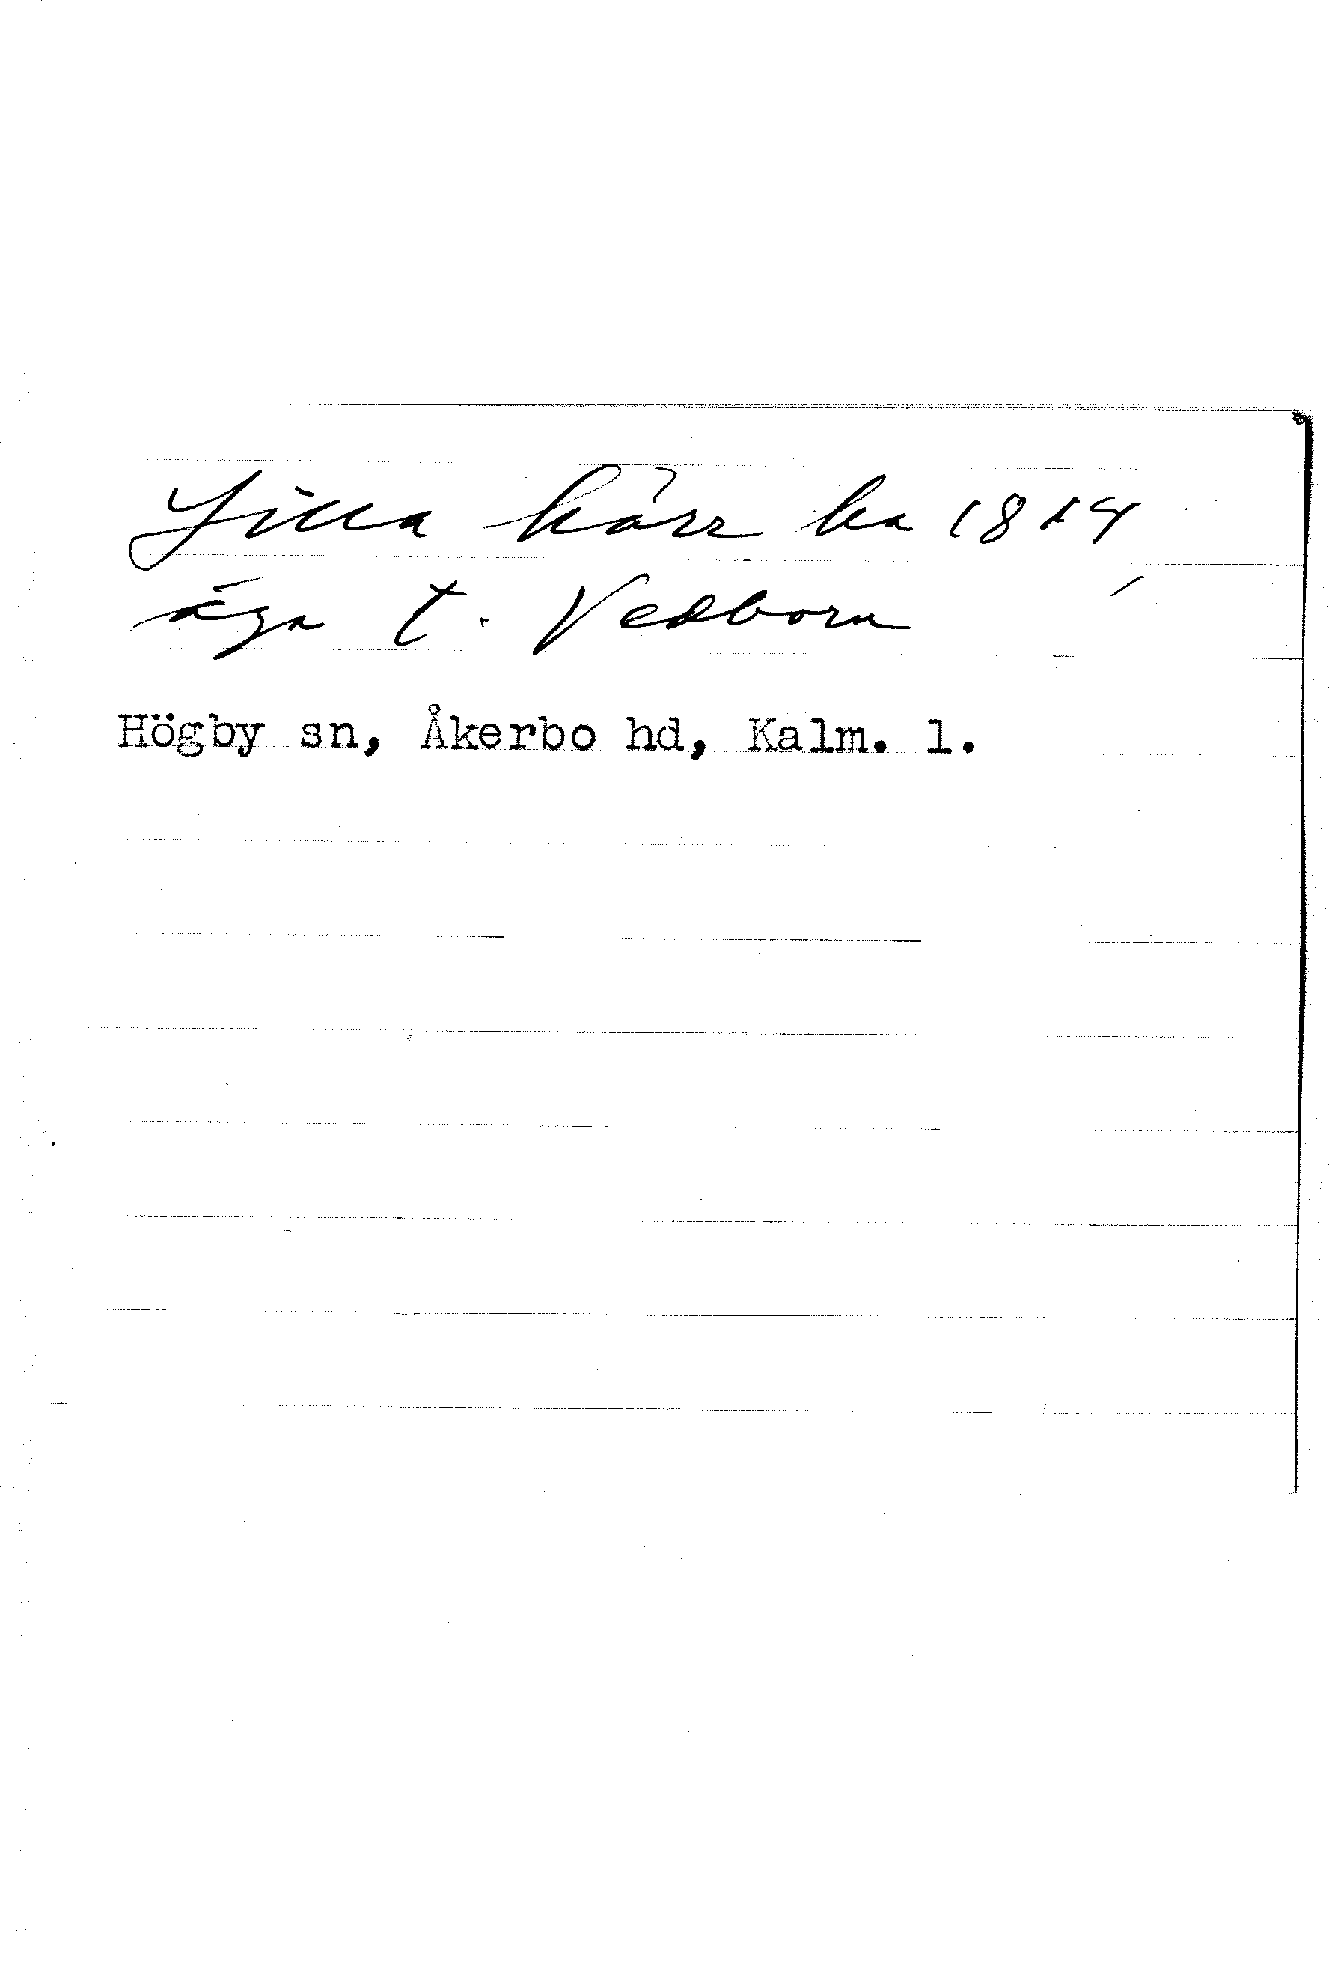 Lilla kärr ha 1814
äga t. Vedborm
Högby sn, Åkerbo hd, Kalm. l.